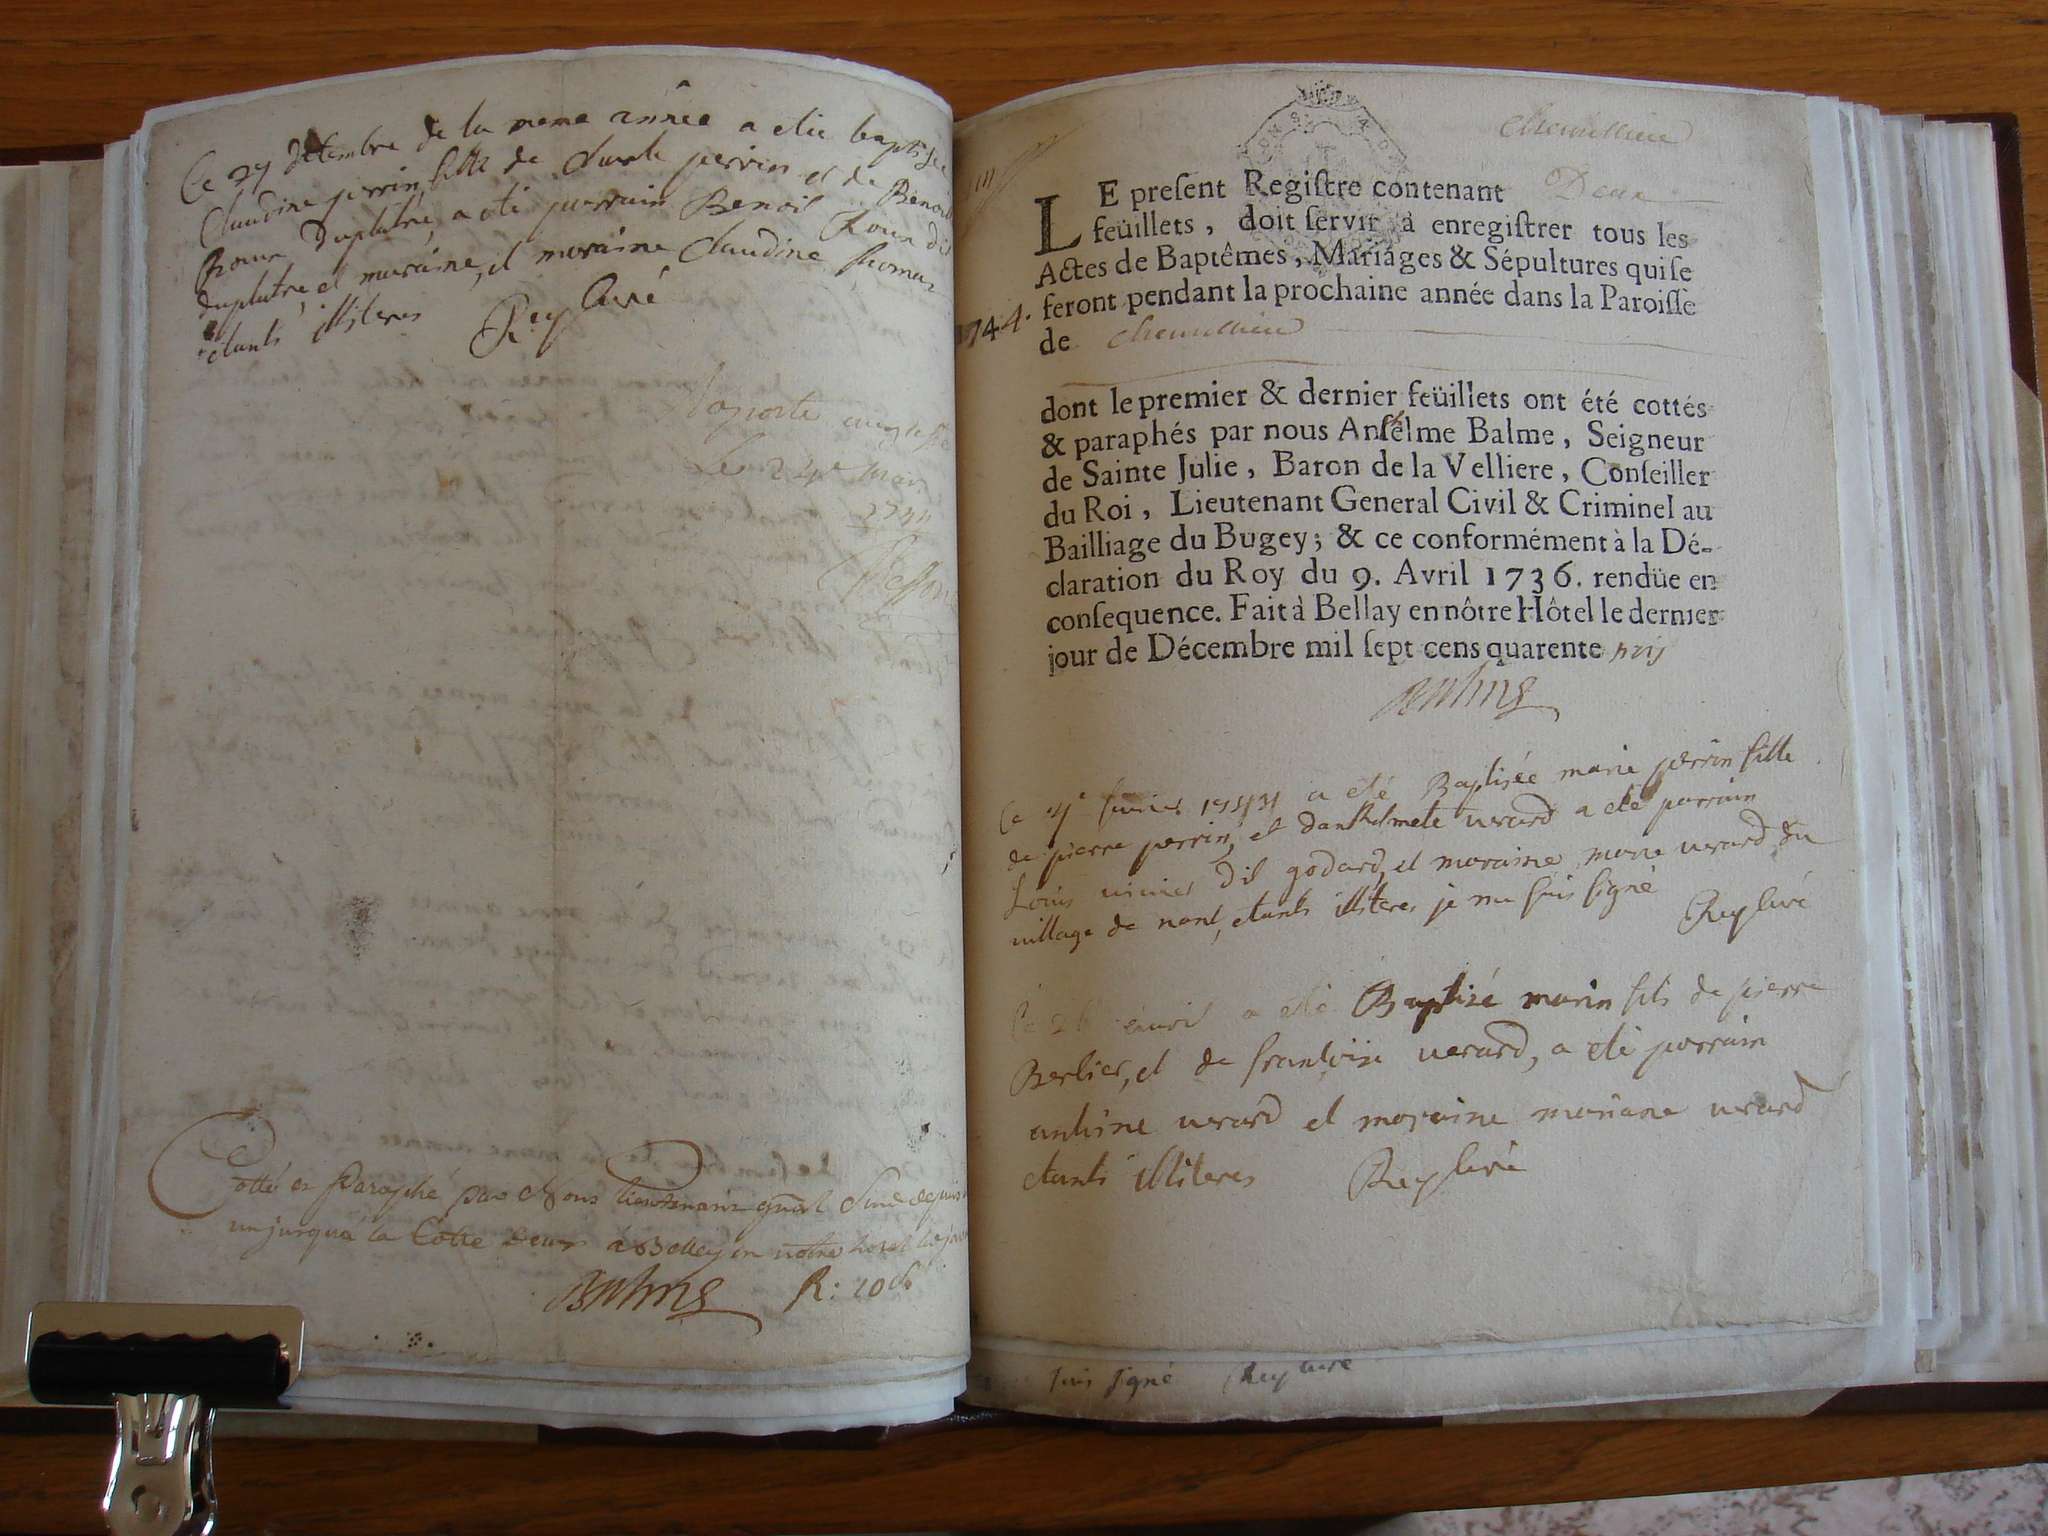 Ce 29 de la meme année a etie baptisée
claudine perrin, fille de claude perrin et de Benoite
Roux duplatre, a eté parrain Benoit Roux dit
duplatre, et moraine claudine
etants illiteres Rey Curé
Raporté au greffe
Le 24e mars
1744
Cotté et Paraphé par Nous Lieutenant gnäl Civil depuis
un jusqua la Cotte deux à Belley en notre hotel
Balme R: 20s
chemillieu
LE preſent Regiſtre contenant Deux
feüillets, doit ſervir à enregiſtrer tous les
Actes de Baptêmes, Mariages & Sépultures qui ſe
feront pendant la prochaine année dans la Paroiſſe
1744.
de chemillieu
dont le premier & dernier feüillets ont été cottés
& paraphés par nous Anthelme Balme, Seigneur
de Sainte Julie, Baron de la Velliere, Conſeiller
du Roi, Lieutenant General Civil & Criminel au
Bailliage du Bugey; & ce conformément à la Dé-
claration du Roy du 9. Avril 1736. rendüe en
conſequence. Fait à Bellay en nôtre Hôtel le dernier
jour de Décembre mil ſept cens quarente trois
Balme
Ce 4e fevrier a eté Baptisée marie perrin fille
de pierre perrin, et danthelmete verard a eté parrain
Louis dit godard, et moraine marie verard du
village de nant, etants illiteres je me suis signé Rey Curé
Ce avril a eté Baptisé marin fils de pierre
Berlier, et de francoise verard, a eté parrain
antoine verard et moraine mariane verard
etants illiteres Rey Curé
suis signé Rey curé